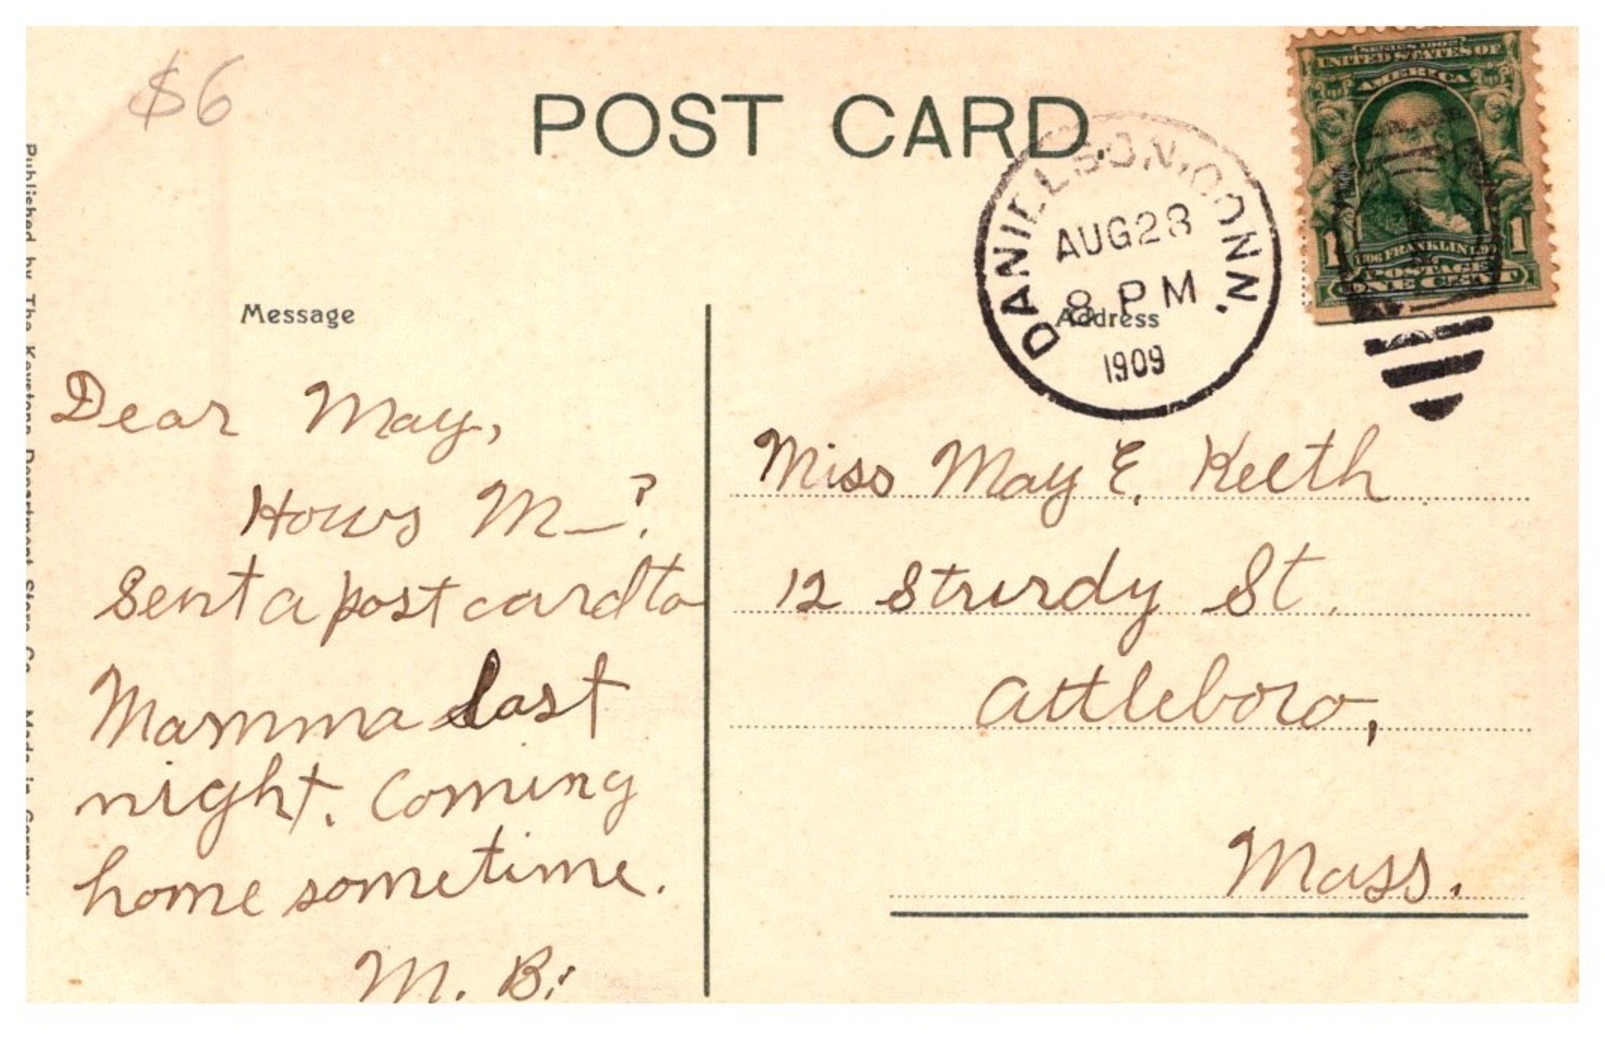 $6
POST CARD.
SERIES 1902
UNITED STATES OF
AMERICA
1706 FRANKLIN 1790
1 1
POSTAGE
ONE CENT
DANIELSON, CONN.
AUG 28
8 PM
1909
Message
Address
Dear May,
Hows M—?
Sent a post card to
Mamma last
night. Coming
home sometime.
M. B.
Miss May E. Keith
12 Sturdy St.
Attleboro,
Mass.
Published by The Keystone Department Store Co. Made in Germany